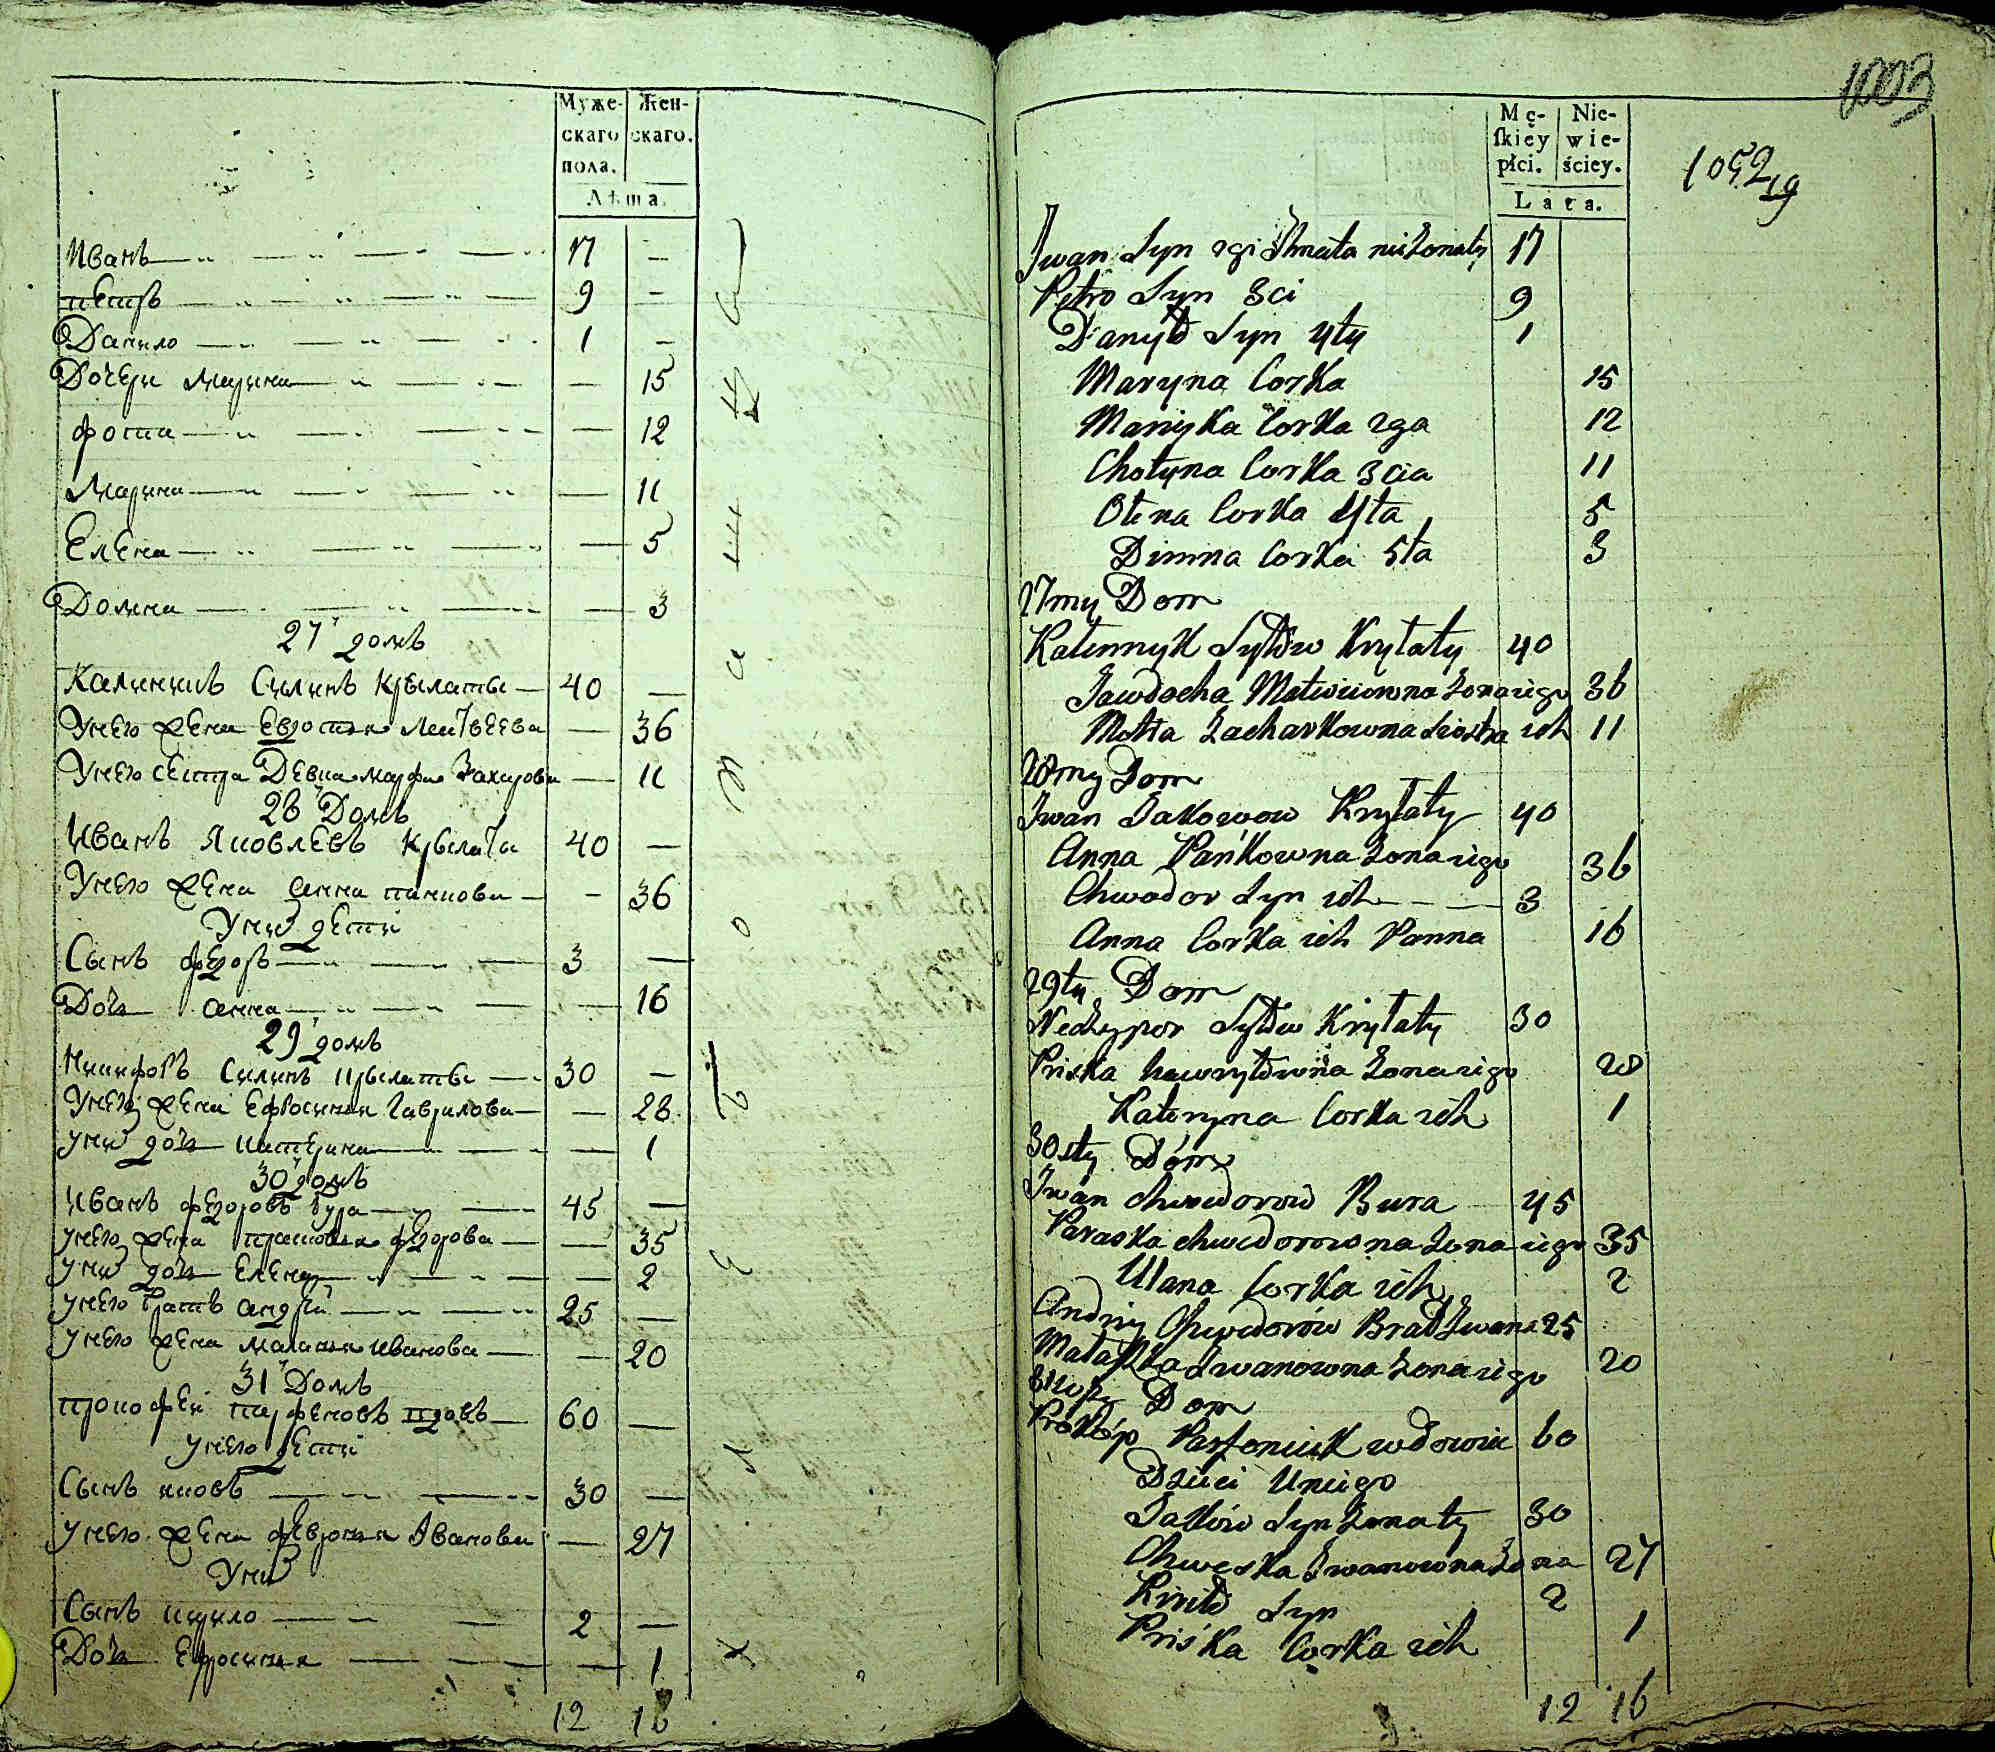 Муже-
скаго
пола.
Жен-
скаго.
Лѣта.
Иванъ 17 -
петръ 9 -
Данило 1 -
Дочери Марина - 15
фотиа - 12
Марина - 11
Елена - 5
Домна - 3
27 домъ
Калиникъ Силинъ Крылаты 40 -
Унего жена Евдотья Матвеева - 36
Унего сестра Девка марфа Захарова - 11
28 Домъ
Иванъ Яковлевъ Крылаты 40 -
Унего жена анна панкова - 36
Уних дети
Сынъ федоръ 3 -
Дочь анна - 16
29 домъ
Никифоръ Силинъ крылаты 30 -
Унего жена Ефросинья Гаврилова - 28
уних дочь катерина - 1
30 домъ
Иванъ федоровъ бура 45 -
унего жена прасковья федорова - 35
уних дочь Елена - 2
унего братъ андрей 25 -
унего жена маланья иванова - 20
31 Домъ
прокофей парфеновъ вдовъ 60 -
унего дети
Сынъ яковъ 30 -
унего жена февронья Иванова - 27
Уних
Сынъ кирило 2 -
Дочь Ефросинья - 1
12 16
1003
1052
Mę-
ſkiey
płci.
Nie-
wie-
ściey.
Lata.
Iwan Syn 2gi nieżonaty 17
Petro Syn 3ci 9
Danyło Syn 4ty 1
Maryna Corka 15
Maryśka Corka 2ga 12
Chotyna Corka 3cia 11
Ołena Corka 4ta 5
Dimna Corka 5ta 3
27my Dom
Kalennyk Syłów Kryłaty 40
Jawdocha Matwiiowna żona iego 36
Motra Zacharkowna Siostra ich 11
28my Dom
Iwan Jakowow Kryłaty 40
Anna Pańkowna żona iego 36
Chwedor Syn ich 3
Anna Corka ich Panna 16
29ty Dom
Neczypor Syłów Kryłaty 30
Priska hawryłowna żona iego 28
Kateryna Corka ich 1
30sty Dom
Iwan chwedorow Bura 45
Paraska chwedorowna żona iego 35
Ulana Corka ich 2
Andriy Chwedorów Brat Iwana 25
Małaszka Iwanowna żona iego 20
31wszy Dom
Prokóp Parfeniuk wdowiec 60
Dzieci Uniego
Jaków Syn żonaty 30
Chweska Iwanowna żona 27
Kiriło Syn 2
Priśka Corka ich 1
12 16